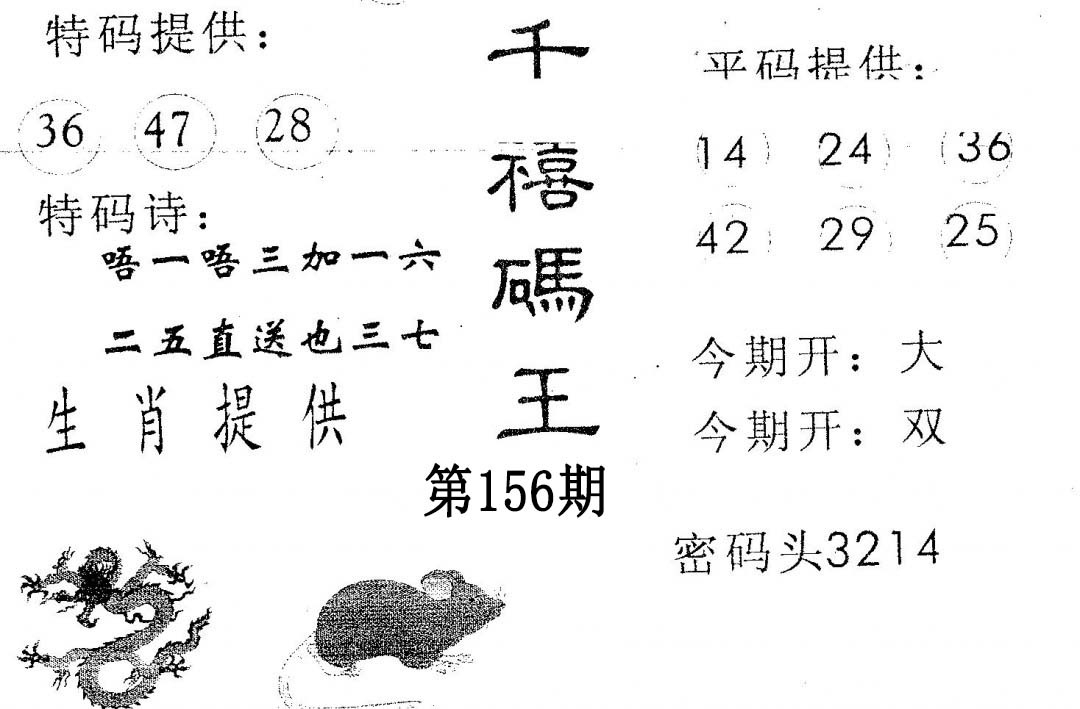 特码提供：
36 47 28
特码诗：
唔一唔三加一六
二五直送也三七
生肖提供
千禧碼王
第156期
平码提供：
14 24 36
42 29 25
今期开：大
今期开：双
密码头3214